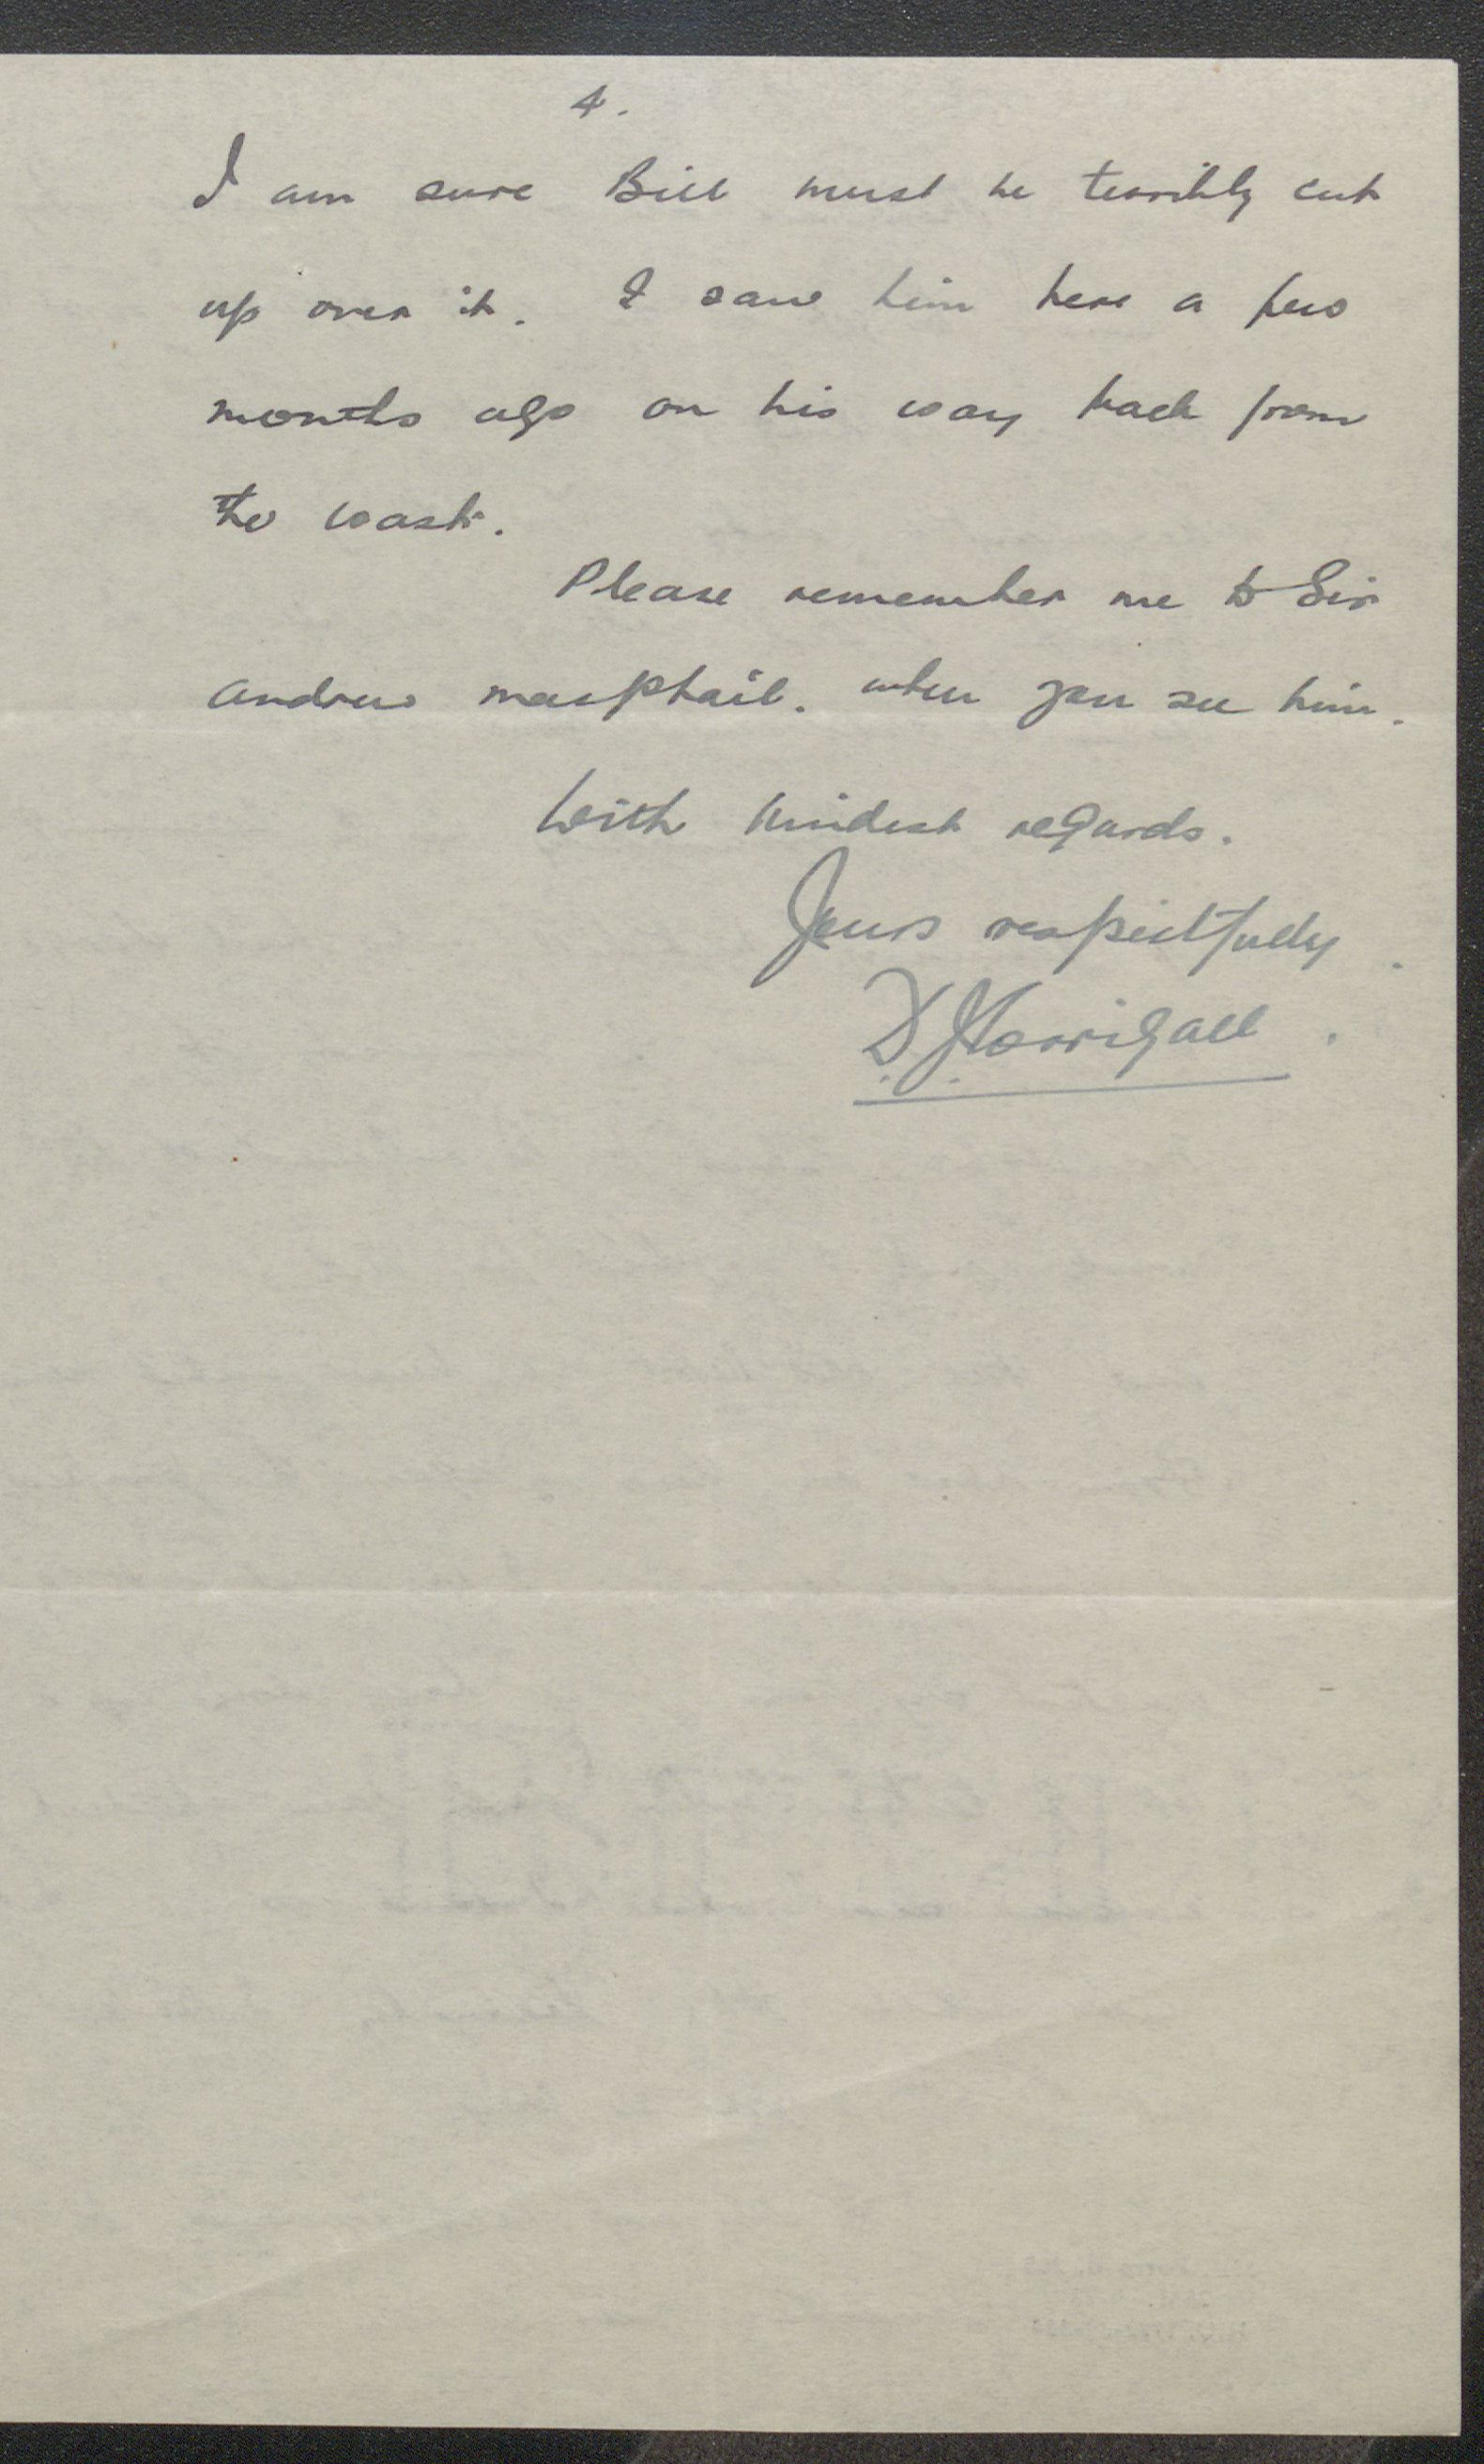 4.
I am sure Bill must be terribly cut
up over it. I saw him here a few
months ago on his way back from
the coast.
Please remember me to Sir
Andrew Macphail. when you see him.
With kindest regards.
Yours respectfully.
D. J. Corrigall.